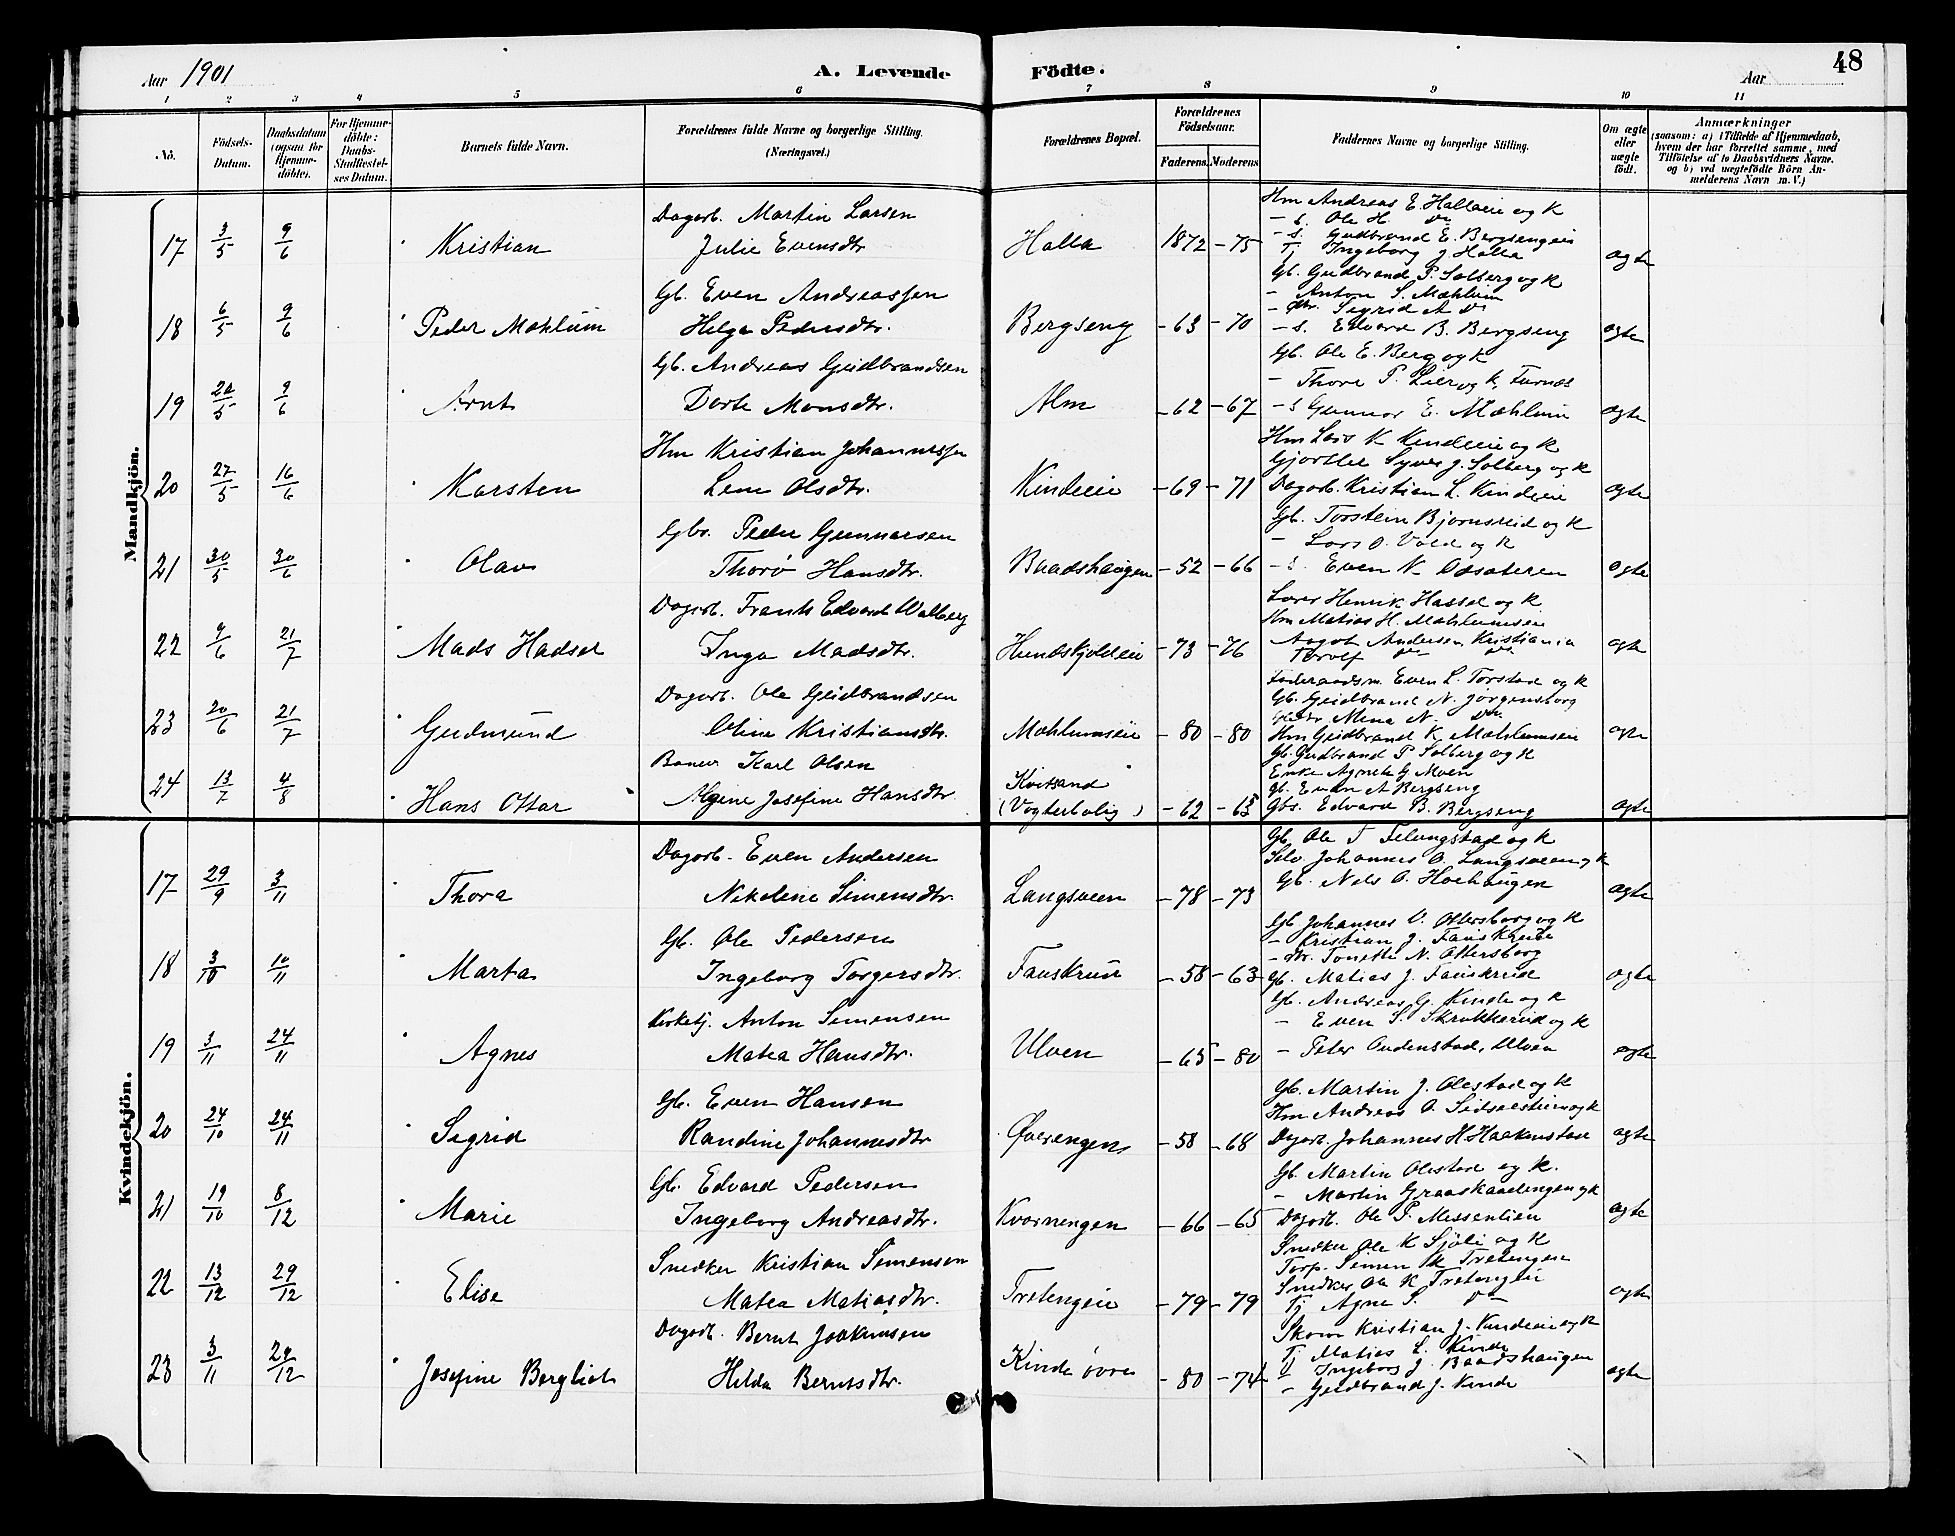 Aar 1901
A. Levende Födte.
Aar
48
1 2 3 4 5 6 7 8 9 10 11
No.
Födsels-
Datum.
Daabsdatum
(ogsaa for
Hjemme-
döbte).
For Hjemme-
döbte:
Daabs-
Stadfæstel-
ses Datum.
Barnets fulde Navn.
Forældrenes fulde Navne og borgerlige Stilling.
(Næringsvei.)
Forældrenes Bopæl.
Forældrenes
Födselsaar.
Faderens.
Moderens.
Faddernes Navne og borgerlige Stilling.
Om ægte
eller
uægte
födt.
Anmærkninger
(saasom: a) i Tilfælde af Hjemmedaab,
hvem der har forrettet samme, med
Tilföielse af to Daabsvidners Navne.
og b) ved uægtefödte Börn An-
melderens Navn m. V.)
Mandkjön.
17 3/5 9/6 Kristian
Dagarb. Martin Larsen
Julie Evensdtr.
Halla 1872 - 75
Hm Andreas E. Hallaeie og K
- S. Ole H. do
- S. Gudbrand E. Bergsengeie
Tj Ingeborg J. Halla
ægte
18 6/5 9/6 Peder Mæhlum
Gb. Even Andreassen
Helga Pedersdtr.
Bergseng - 63 - 70
Gb. Gudbrand P. Solberg og K
- Anton S. Mæhlum
- dtr. Sigrid A do
- S. Edvard B. Bergseng
ægte
19 20/5 9/6 Arnt
Gb. Andreas Gudbrandsen
Dorte Monsdtr.
Alm - 62 - 67
Gb. Ole E. Berg og K
- Thore P. Lier og K, Furnæs
- S Gunnar E. Mæhlum
ægte
20 27/5 16/6 Karsten
Hm Kristian Johannessen
Lene Olsdtr.
Kindeeie - 69 - 71
Hm Lars K Kindeeie og K
Gjørtler Syver J. Solberg og K
Dagarb. Kristian L. Kindeeie
ægte
21 30/5 30/6 Olav
Gbr. Peder Gunnarsen
Thorø Hansdtr.
Baadshaugen - 52 - 66
Gb. Torstein Bjørnsreid og K
- Lars O. Vold og K
- S. Even N. Odsæteren
ægte
22 9/6 21/7 Mads Hadsel
Dagarb. Frants Edvard Walberg
Inga Madsdtr.
Hundskjoldeie - 73 - 76
Lærer Henrik Hassel og K
Hm Matias H. Mæhlumseie
Aagot Andersen, Kristiania
Torolf do do
ægte
23 20/6 21/7 Gudmund
Dagarb. Ole Gudbrandsen
Oline Kristiansdtr.
Mæhlumseie - 80 - 80
Føderaadsm. Even L. Torstad og K
Gb. Gudbrand N. Jørgensborg
Gbdtr Mina N. do
Hm Gudbrand K. Mæhlumseie
ægte
24 13/7 4/8 Hans Ottar
Banev. Karl Olsen
Algine Josefine Hansdtr.
Kvitsand
(Vogterbolig) - 62 - 65
Gb. Gudbrand P. Solberg og K
Enke Agnete G Moen
Gb. Even A Bergseng
Gbs. Edvard B. Bergseng
ægte
Kvindekjön.
17 29/9 3/11 Thora
Dagarb. Even Andersen
Nikoline Simensdtr.
Langsveen - 78 - 73
Gb. Ole T Felungstad og K
Selv. Johannes O. Langsveen og K
Gb. Nels O. Hoehaugen
ægte
18 3/10 10/11 Marta
Gb. Ole Pedersen
Ingeborg Torgersdtr.
Fauskrud - 58 - 63
Gb. Johannes O. Ottersborg og K
- Kristian J. Fauskrud
- dtr. Tonette N. Ottersborg
Gb. Matias J. Fauskrud
ægte
19 3/11 24/11 Agnes
Kirketj. Anton Simensen
Matea Hansdtr.
Ulven - 65 - 80
Gb. Andreas G. Kinde og K
- Even S. Skrukkerud og K
- Peter Audenstad, Ulven
ægte
20 24/10 24/11 Sigrid
Gb. Even Hansen
Randine Johannesdtr
Øverengen - 58 - 68
Gb. Martin J. Olestad og K
Hm Andreas O. Sidsaestuen og K
Dagarb. Johannes H Haakenstad
ægte
21 19/10 8/12 Marie
Gb. Edvard Pedersen
Ingeborg Andreasdtr.
Kvernengen - 66 - 65
Gb. Martin Olestad og K.
- Martin Graaskaadengen og K
Dagarb. Ole P. Messenlien
ægte
22 13/12 29/12 Elise
Snedker Kristian Simensen
Matea Matiasdtr.
Tretengeie - 79 - 79
Snedker Ole K Sjøli og K
Torp. Simen K Tretengen
Snedker Ole K Tretengeie
Tj Agne S. do
ægte
23 3/11 29/12 Josefine Bergliot
Dagarb. Bernt Joakimsen
Hilda Berntsdtr.
Kinde øvre - 80 - 74
Skom Kristian J. Kindeeie og K
Tj Matias L. Kinde
" Ingeborg J. Baadshaugen
- Gudbrand J. Kinde
ægte